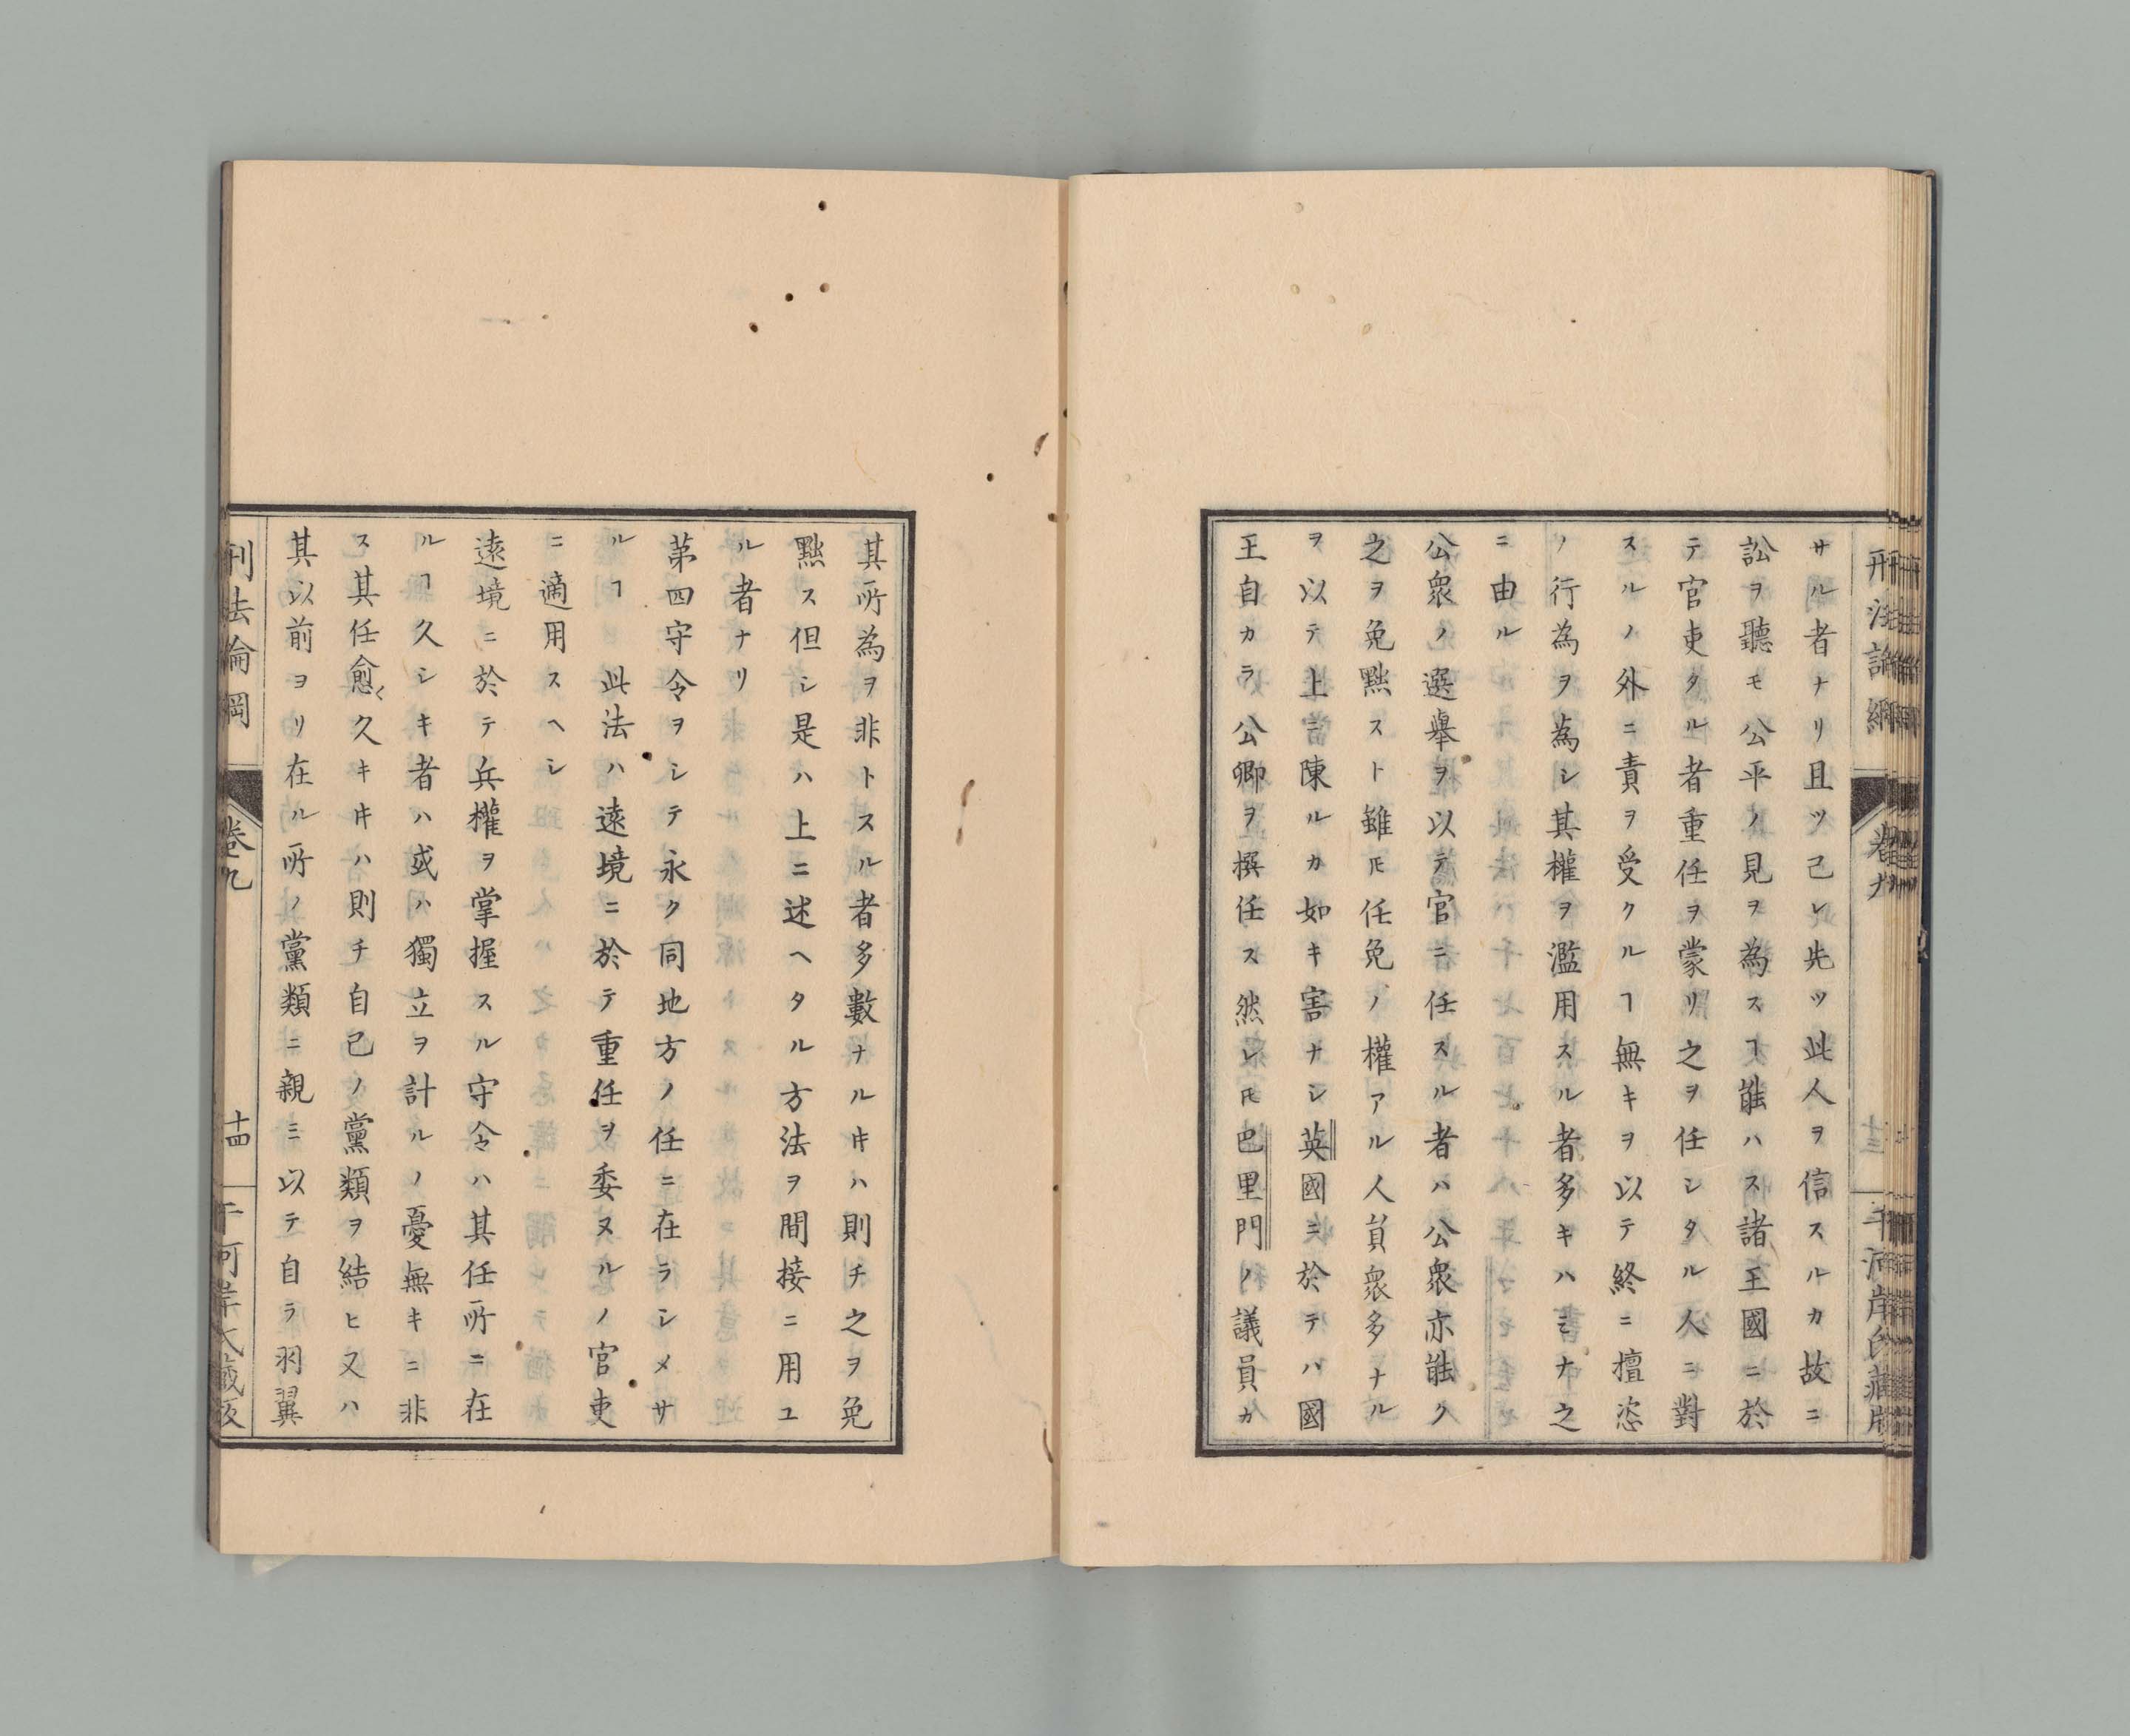 サル者ナリ且ツ己レ先ツ此人ヲ信スルカ故ニ
訟ヲ聽モ公平ノ見ヲ為スヿ能ハス諸王國ニ於
テ官吏タル者重任ヲ蒙リ之ヲ任シタル人ニ對
スルノ外ニ責ヲ受クルヿ無キヲ以テ終ニ擅恣
ノ行為ヲ為シ其權ヲ濫用スル者多キハミナ之
ニ由ル
公衆ノ選舉ヲ以テ官ニ任スル者ハ公衆亦能ク
之ヲ免黜スト雖𪜈任免ノ權アル人員衆多ナル
ヲ以テ上ニ陳ルカ如キ害ナシ英國ニ於テハ國
王自カラ公卿ヲ撰任ス然レ𪜈巴里門ノ議員カ
其所為ヲ非トスル者多數ナルㇳキハ則チ之ヲ免
黜ス但シ是ハ上ニ述ヘタル方法ヲ間接ニ用ユ
ル者ナリ
第四守令ヲシテ永ク同地方ノ任ニ在ラシメサ
ルヿ 此法ハ遠境ニ於テ重任ヲ委ヌルノ官吏
ニ適用スヘシ
遠境ニ於テ兵權ヲ掌握スル守令ハ其任所ニ在
ルヿ久シキ者ハ或ハ獨立ヲ計ルノ憂無キニ非
ス其任愈〻久キㇳキハ則チ自己ノ黨類ヲ結ヒ又ハ
其以前ヨリ在ル所ノ黨類ニ親ミ以テ自ラ羽翼
刑法論綱
卷九
十四